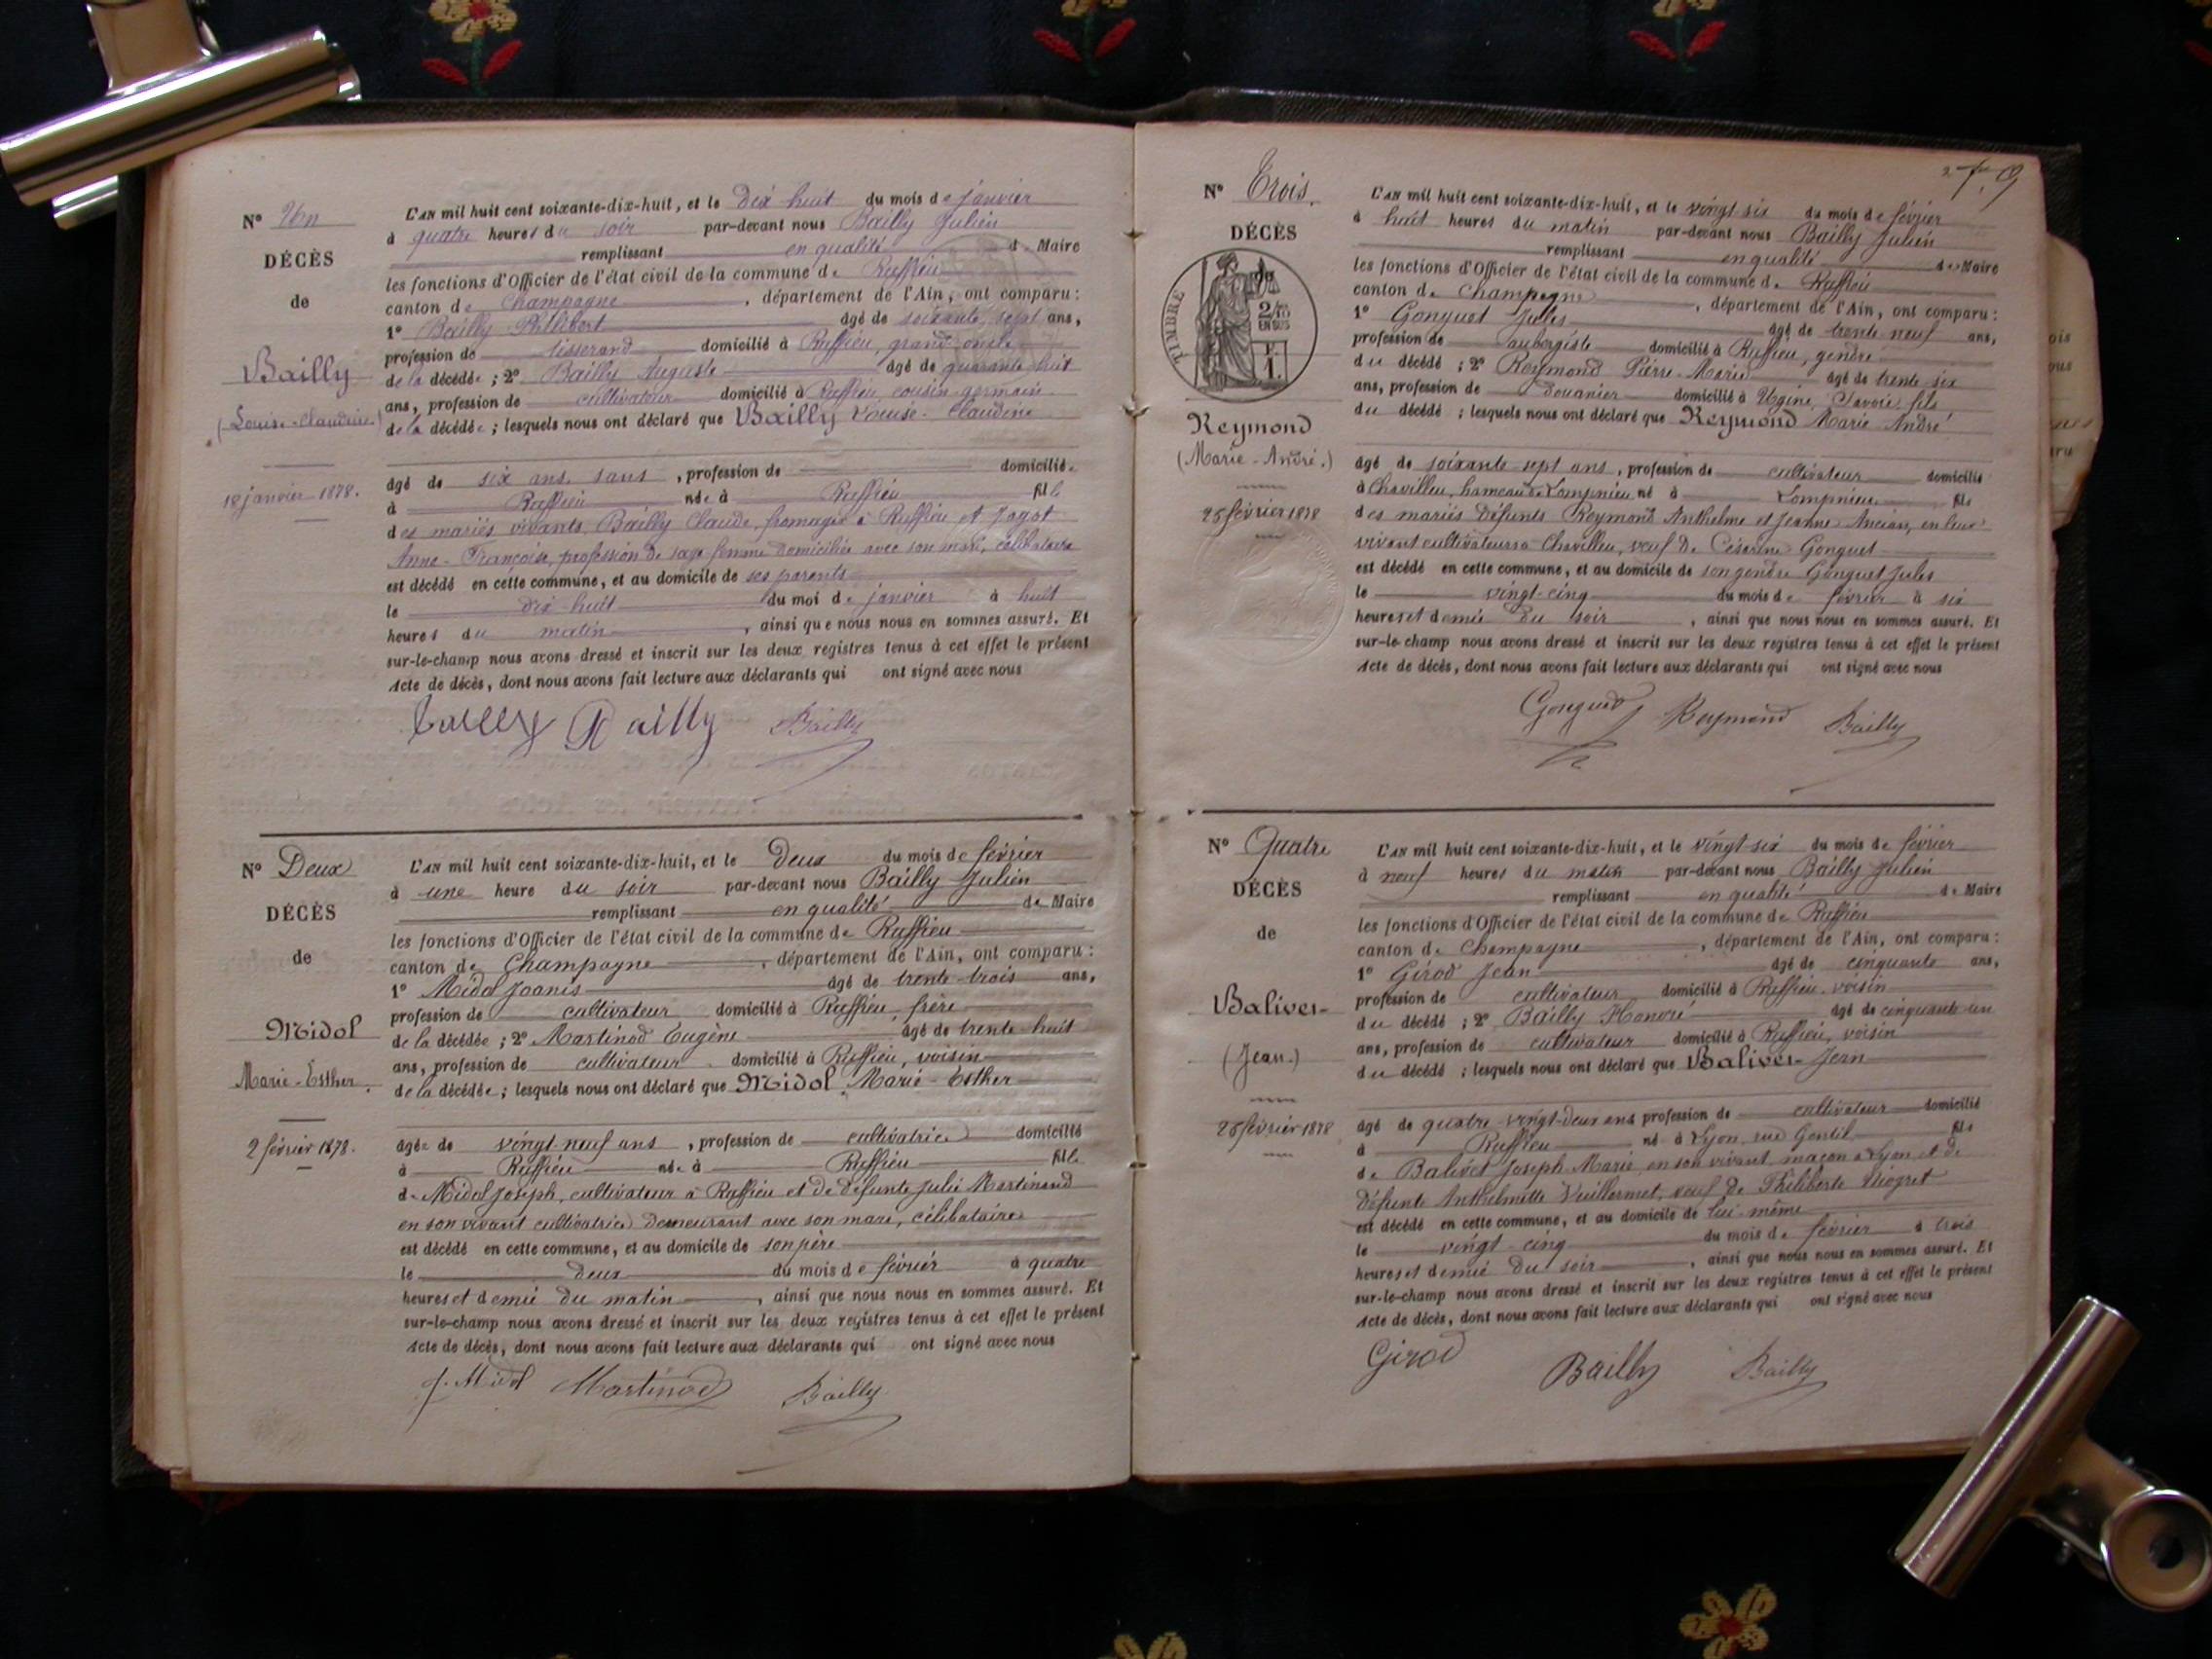 N° Un
DÉCÈS
de
Bailly
(Louise-Claudine)
18 janvier 1878.
L'AN mil huit cent soixante-dix-huit, et le dix huit du mois de janvier
à quatre heures du soir par-devant nous Bailly Julien
remplissant en qualité de Maire
les fonctions d'Officier de l'état civil de la commune de Ruffieu
canton de Champagne, département de l'Ain, ont comparu :
1° Bailly Philibert âgé de soixante sept ans,
profession de tisserand domicilié à Ruffieu, grand oncle
de la décédée ; 2° Bailly Auguste âgé de quarante huit
ans, profession de cultivateur domicilié à Ruffieu, cousin germain
de la décédée ; lesquels nous ont déclaré que Bailly Louise-Claudine
âgé de six ans, sans, profession de domiciliée
à Ruffieu née à Ruffieu fille
des mariés vivants Bailly Claude, fromager à Ruffieu et Jagot
Anne-Françoise, profession de sage-femme domiciliée avec son mari, célibataire
est décédé en cette commune, et au domicile de ses parents
le dix huit du moi de janvier à huit
heures du matin, ainsi que nous nous en sommes assuré. Et
sur-le-champ nous avons dressé et inscrit sur les deux registres tenus à cet effet le présent
Acte de décès, dont nous avons fait lecture aux déclarants qui ont signé avec nous
Bailly Bailly Bailly
N° Deux
DÉCÈS
de
Midol
Marie-Esther.
2 février 1878.
L'AN mil huit cent soixante-dix-huit, et le deux du mois de février
à une heure du soir par-devant nous Bailly Julien
remplissant en qualité de Maire
les fonctions d'Officier de l'état civil de la commune de Ruffieu
canton de Champagne, département de l'Ain, ont comparu :
1° Midol Joanis âgé de trente trois ans,
profession de cultivateur domicilié à Ruffieu, frère
de la décédée ; 2° Martinod Eugène âgé de trente huit
ans, profession de cultivateur domicilié à Ruffieu, voisin
de la décédée ; lesquels nous ont déclaré que Midol Marie-Esther
âgée de vingt-neuf ans, profession de cultivatrice domicilié
à Ruffieu née à Ruffieu fille
de Midol Joseph, cultivateur à Ruffieu et de défunte Julie Martinand
en son vivant cultivatrice demeurant avec son mari, célibataire
est décédé en cette commune, et au domicile de son père
le deux du mois de février à quatre
heures et demie du matin, ainsi que nous nous en sommes assuré. Et
sur-le-champ nous avons dressé et inscrit sur les deux registres tenus à cet effet le présent
Acte de décès, dont nous avons fait lecture aux déclarants qui ont signé avec nous
J. Midol Martinod Bailly
N° Trois.
DÉCÈS
TIMBRE
2/10
EN SUS
Reymond
(Marie-André.)
25 février 1878
L'AN mil huit cent soixante-dix-huit, et le vingt six du mois de février
à huit heures du matin par-devant nous Bailly Julien
remplissant en qualité de Maire
les fonctions d'Officier de l'état civil de la commune de Ruffieu
canton de Champagne, département de l'Ain, ont comparu :
1° Gonguet Jules âgé de trente neuf ans,
profession de aubergiste domicilié à Ruffieu, gendre
du décédé ; 2° Reymond Pierre-Marie âgé de trente six
ans, profession de douanier domicilié à Ugine, Savoie, fils
du décédé ; lesquels nous ont déclaré que Reymond Marie André
âgé de soixante sept ans, profession de cultivateur domicilié
à Chavilleu, hameau de Lompnieu né à Lompnieu fils
des mariés défunts Reymond Anthelme et Jeanne Ancian, en leur
vivant cultivateurs à Chavilleu, veuf de Césarine Gonguet
est décédé en cette commune, et au domicile de son gendre Gonguet Jules
le vingt-cinq du mois de février à six
heures et demie du soir, ainsi que nous nous en sommes assuré. Et
sur-le-champ nous avons dressé et inscrit sur les deux registres tenus à cet effet le présent
Acte de décès, dont nous avons fait lecture aux déclarants qui ont signé avec nous
Gonguet Reymond Bailly
N° Quatre
DÉCÈS
de
Balivet
(Jean.)
25 février 1878
L'AN mil huit cent soixante-dix-huit, et le vingt six du mois de février
à neuf heures du matin par-devant nous Bailly Julien
remplissant en qualité de Maire
les fonctions d'Officier de l'état civil de la commune de Ruffieu
canton de Champagne, département de l'Ain, ont comparu :
1° Girod Jean âgé de cinquante ans,
profession de cultivateur domicilié à Ruffieu, voisin
du décédé ; 2° Bailly Honoré âgé de cinquante un
ans, profession de cultivateur domicilié à Ruffieu, voisin
du décédé ; lesquels nous ont déclaré que Balivet Jean
âgé de quatre-vingt-deux ans profession de cultivateur domicilié
à Ruffieu né à Lyon, rue Gentil fils
de Balivet Joseph Marie, en son vivant, maçon à Lyon et de
défunte Anthelmette Vuillermet, veuf de Philiberte
est décédé en cette commune, et au domicile de lui-même
le vingt-cinq du mois de février à trois
heures et demie du soir, ainsi que nous nous en sommes assuré. Et
sur-le-champ nous avons dressé et inscrit sur les deux registres tenus à cet effet le présent
Acte de décès, dont nous avons fait lecture aux déclarants qui ont signé avec nous
Girod Bailly Bailly